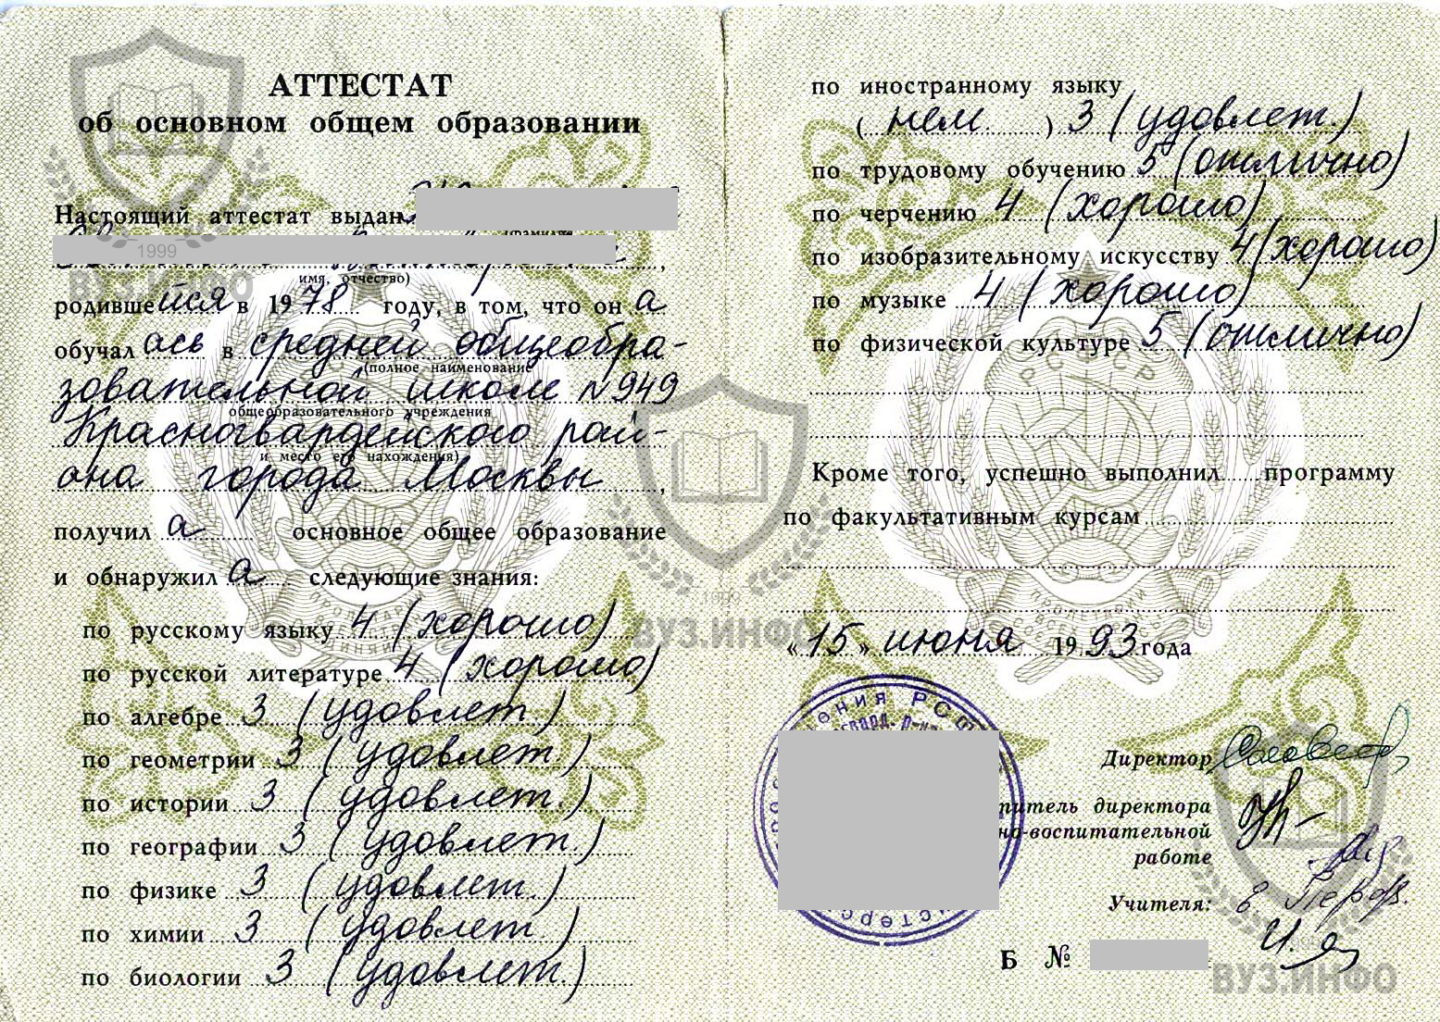 АТТЕСТАТ
об основном общем образовании
Настоящий аттестат выдан
имя, отчество)
родившейся в 1978 году, в том, что он а
обучалась в средней общеобра-
(полное наименование
зовательной школе №949
общеобразовательного учреждения
Красногвардейского рай-
и место его нахождения)
она города Москвы,
получил а основное общее образование
и обнаружил а следующие знания:
по русскому языку 4 (хорошо)
по русской литературе 4 (хорошо)
по алгебре 3 (удовлет.)
по геометрии 3 (удовлет.)
по истории 3 (удовлет.)
по географии 3 (удовлет.)
по физике 3 (удовлет.)
по химии 3 (удовлет.)
по биологии 3 (удовлет.)
по иностранному языку
(нем.) 3 (удовлет.)
по трудовому обучению 5 (отлично)
по черчению 4 (хорошо)
по изобразительному искусству 4 (хорошо)
по музыке 4 (хорошо)
по физической культуре 5 (отлично)
Кроме того, успешно выполнил программу
по факультативным курсам
«15» июня 1993 года
Директор
директора
но-воспитательной
работе
Учителя:
Б №
ВУЗ.ИНФО
1999
ВУЗ.ИНФО
1999
ВУЗ.ИНФО